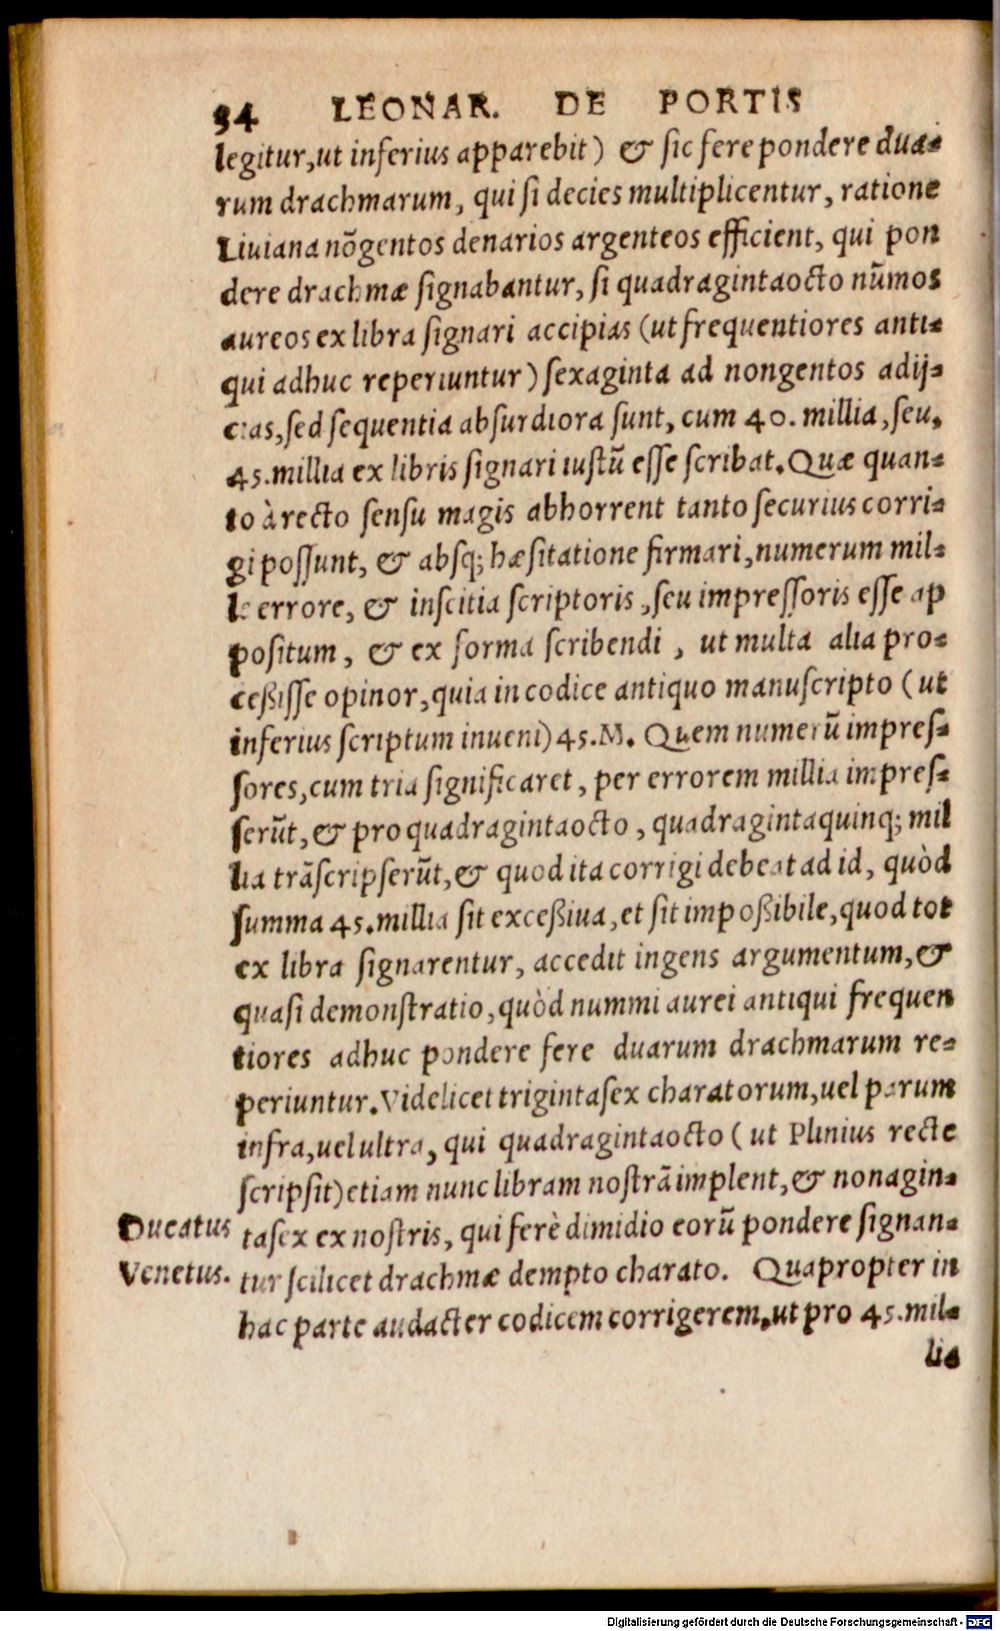 94 LEONAR. DE PORTIS
legitur, ut inferius apparebit) & sic fere pondere dua-
rum drachmarum, qui si decies multiplicentur, ratione
Liuiana nõgentos denarios argenteos efficient, qui pon
dere drachmæ signabantur, si quadragintaocto nũmos
aureos ex libra signari accipias (ut frequentiores anti-
qui adhuc reperiuntur) sexaginta ad nongentos adij-
cias, sed sequentia absurdiora sunt, cum 40. millia, seu,
45. millia ex libris signari iustũ esse scribat. Quæ quan-
to à recto sensu magis abhorrent tanto securius corri-
gi possunt, & absq; hæsitatione firmari, numerum mil-
le errore, & inscitia scriptoris, seu impressoris esse ap
positum, & ex forma scribendi, ut multa alia pro-
ceßisse opinor, quia in codice antiquo manuscripto (ut
inferius scriptum inueni) 45. M. Quem numerũ impres-
sores, cum tria significaret, per errorem millia impres-
serũt, & pro quadragintaocto, quadragintaquinq; mil
lia trãscripserũt, & quod ita corrigi debeat ad id, quòd
summa 45. millia sit exceßiua, et sit impoßibile, quod tot
ex libra signarentur, accedit ingens argumentum, &
quasi demonstratio, quòd nummi aurei antiqui frequen
tiores adhuc pondere fere duarum drachmarum re-
periuntur. Videlicet trigintasex charatorum, uel parum
infra, uel ultra, qui quadragintaocto (ut Plinius recte
scripsit) etiam nunc libram nostrã implent, & nonagin-
Ducatus tasex ex nostris, qui ferè dimidio eorũ pondere signan-
Venetus. tur scilicet drachmæ dempto charato. Quapropter in
hac parte audacter codicem corrigerem, ut pro 45. mil-
lia
Digitalisierung gefördert durch die Deutsche Forschungsgemeinschaft - DFG